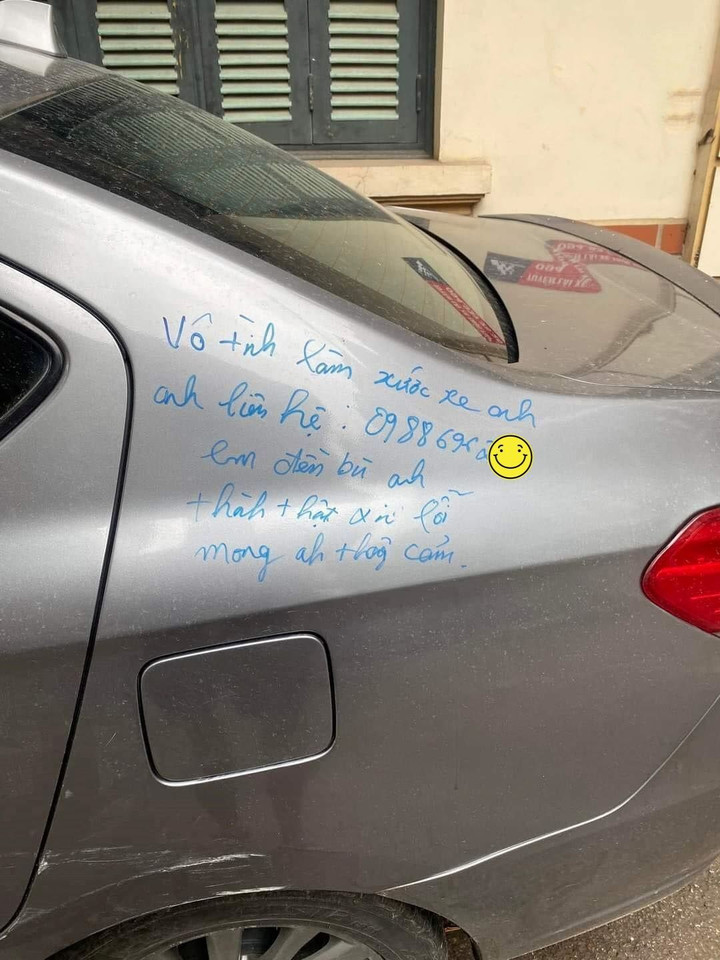 Vô tình làm xước xe anh
anh liên hệ : 098869
em đền bù anh
thành thật xin lỗi
mong ah thông cảm.